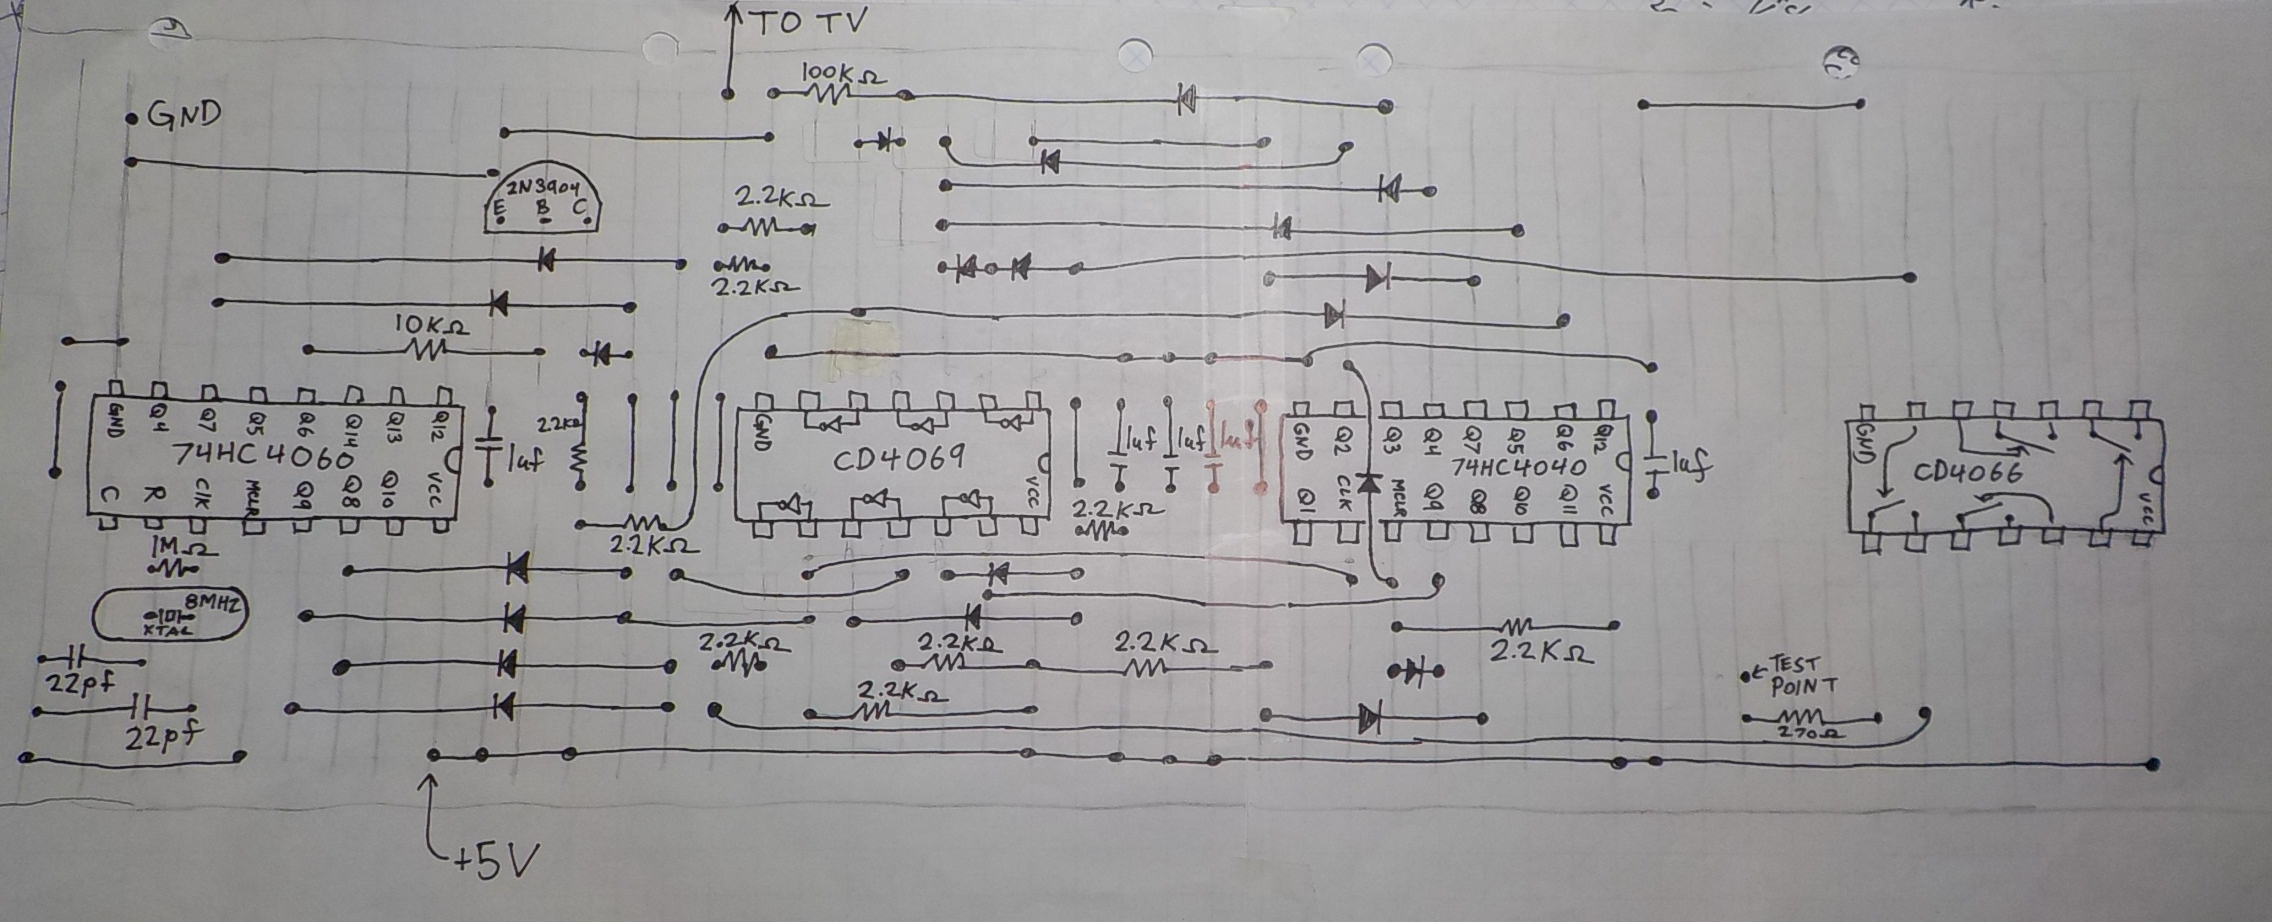 TO TV
100KΩ
GND
2N3904
E B C
2.2KΩ
2.2KΩ
10KΩ
GND Q4 Q7 Q5 Q6 Q14 Q13 Q12
74HC4060
C R CLK MCLR Q9 Q8 Q10 VCC
1uf
2.2KΩ
GND
CD4069
VCC
1uf
1uf
1uf
GND Q2 Q3 Q4 Q7 Q5 Q6 Q12
74HC4040
Q1 CLK MCLR Q9 Q8 Q10 Q11 VCC
1uf
GND
CD4066
VCC
2.2KΩ
2.2KΩ
1MΩ
8MHZ
XTAL
22pf
22pf
2.2KΩ
2.2KΩ
2.2KΩ
2.2KΩ
2.2KΩ
TEST
POINT
270Ω
+5V